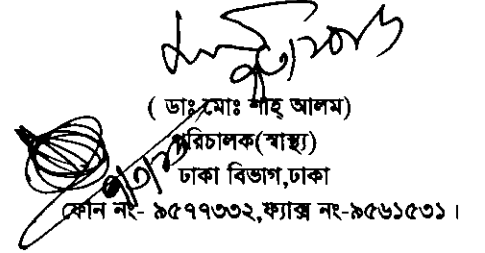 ( ডাঃ মোঃ শাহ্ আলম)
পরিচালক(স্বাস্থ্য)
ঢাকা বিভাগ,ঢাকা
ফোন নং- ৯৫৭৭৩৩২,ফ্যাক্স নং-৯৫৬১৫৩১।